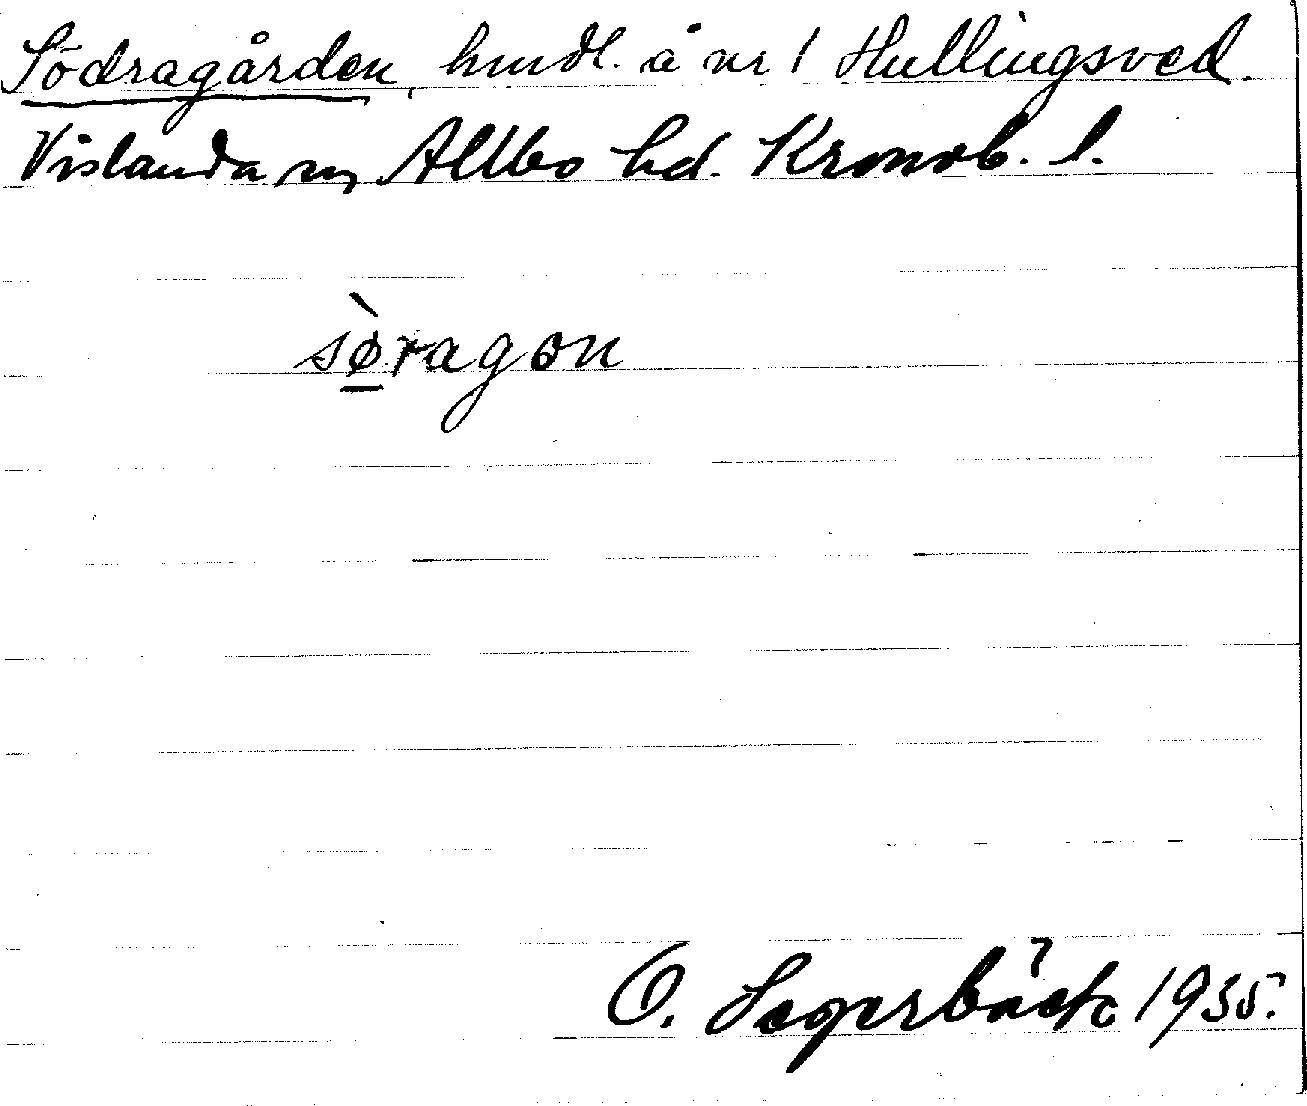 Södragården, hmdl. å nr 1 Hullingsved.
Vislanda sn, Allbo hd. Kronob. l.
sø̀ragon
O. Segerbäck 1935.